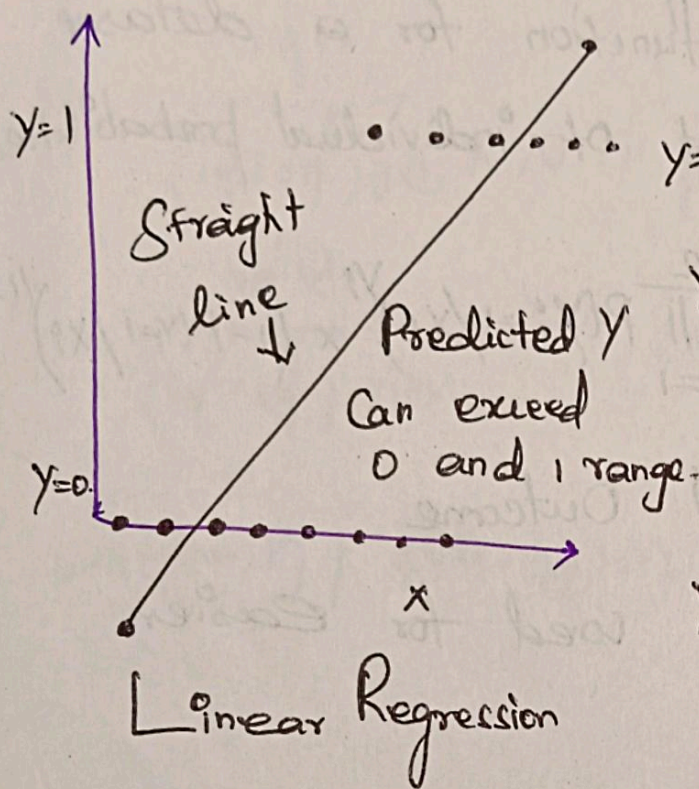 Y=1
Straight
line
Predicted Y
Can exceed
0 and 1 range.
Y=0.
X
Linear Regression
Y=